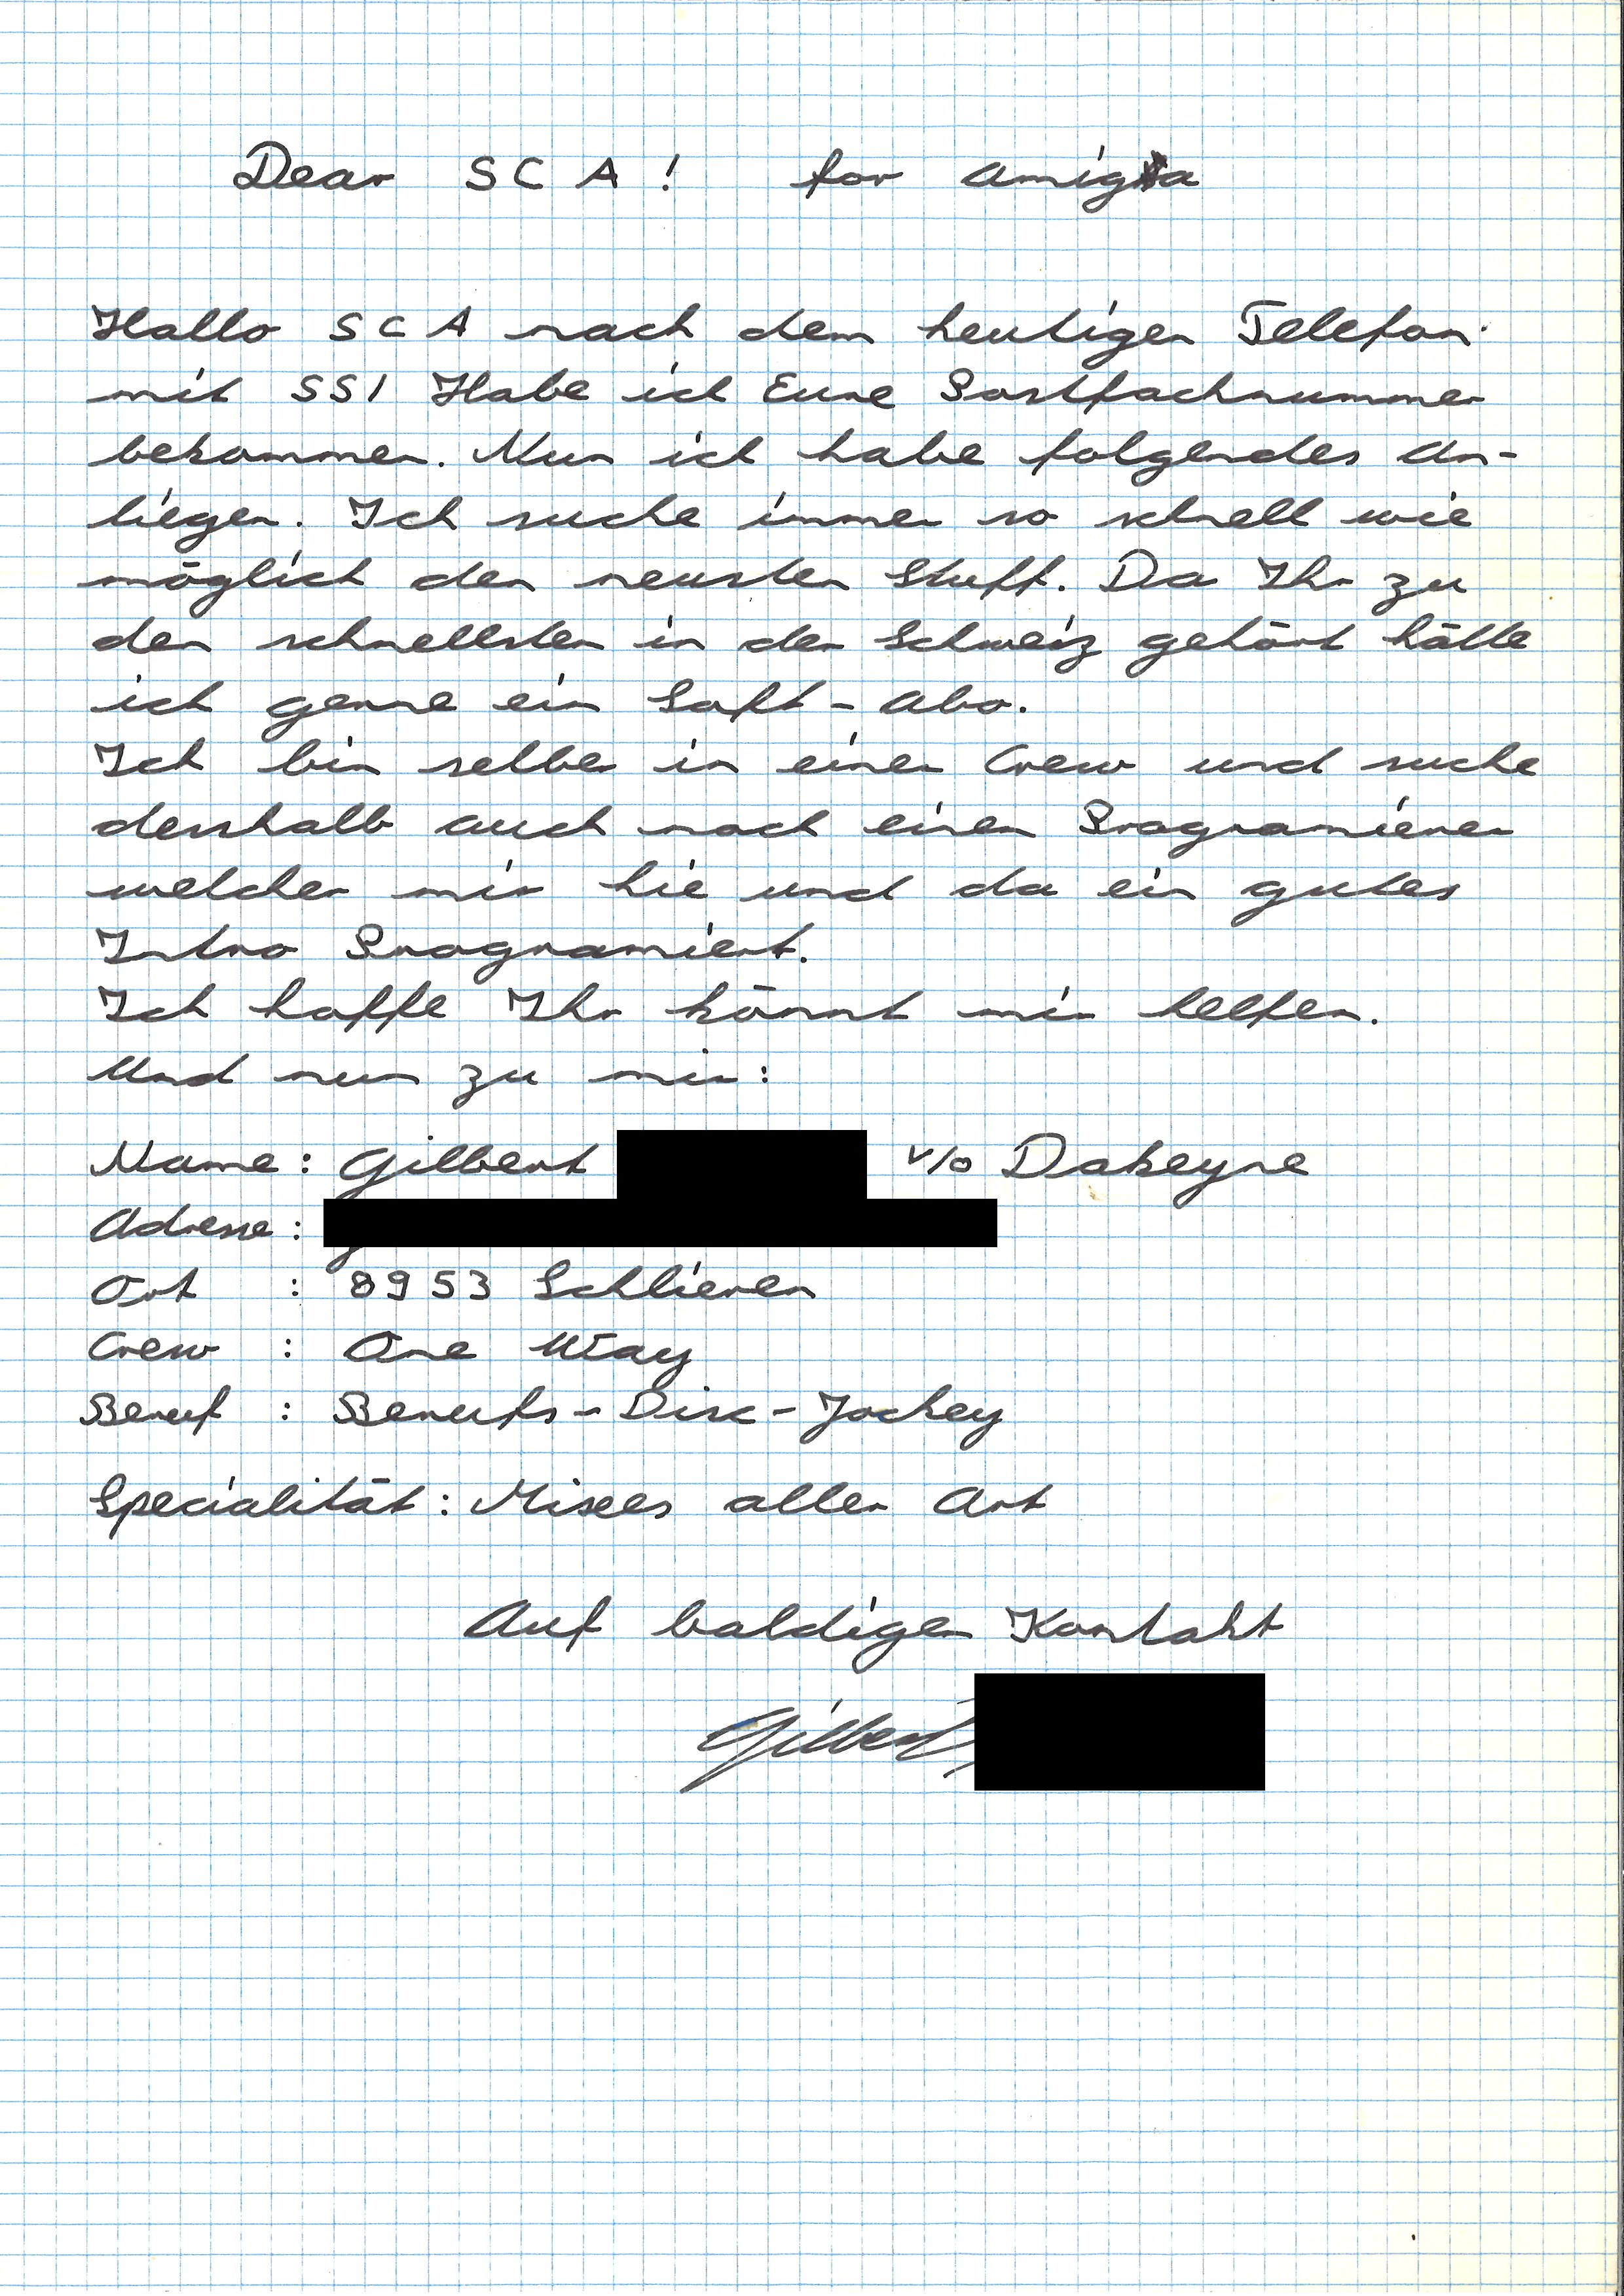 Dear SCA! for Amiga
Hallo SCA nach dem heutigen Telefon
mit SSI Habe ich Eure Postfachnummer
bekommen. Nun ich habe folgendes An-
liegen. Ich suche immer so schnell wie
möglich den neusten Stuff. Da Ihr zu
den schnellsten in der Schweiz gehört hätte
ich gerne ein Soft-Abo.
Ich bin selber in einer Crew und suche
desshalb auch noch einen Programierer
welcher mir hie und da ein gutes
Intro Programiert.
Ich hoffe Ihr könnt mir helfen.
Und nun zu mir:
Name: Gilbert v/o Dakeyne
Adresse:
Ort : 8953 Schlieren
Crew : One Way
Beruf : Berufs-Disc-Jockey
Specialität: Mixes aller Art
Auf baldigen Kontakt
Gilbert